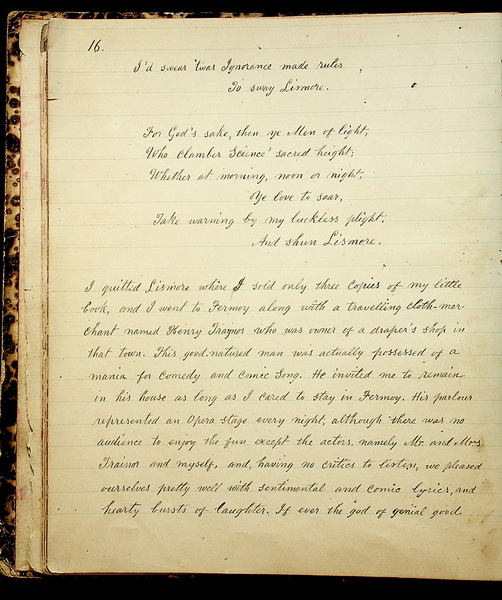 16.
I'd swear 'twas Ignorance made rules
To sway Lismore.
For God's sake, then ye Men of light,
Who Clamber Science' sacred height;
Whether at morning, noon or night,
Ye love to soar,
Take warning by my luckless plight,
And shun Lismore.
I quitted Lismore where I sold only three Copies of my little
book, and I went to Fermoy along with a travelling Cloth-mer-
chant named Henry Traynor who was owner of a draper's shop in
that town. This good-natured man was actually possessed of a
mania for Comedy and Comic Song. He invited me to remain
in his house as long as I cared to stay in Fermoy. His parlour
represented an Opera stage every night, although there was no
audience to enjoy the fun except the actors, namely Mr. and Mrs
Trainor and myself, and, having no critics to listen, we pleased
ourselves pretty well with sentimental and Comic lyrics, and
hearty bursts of laughter. If ever the god of genial good